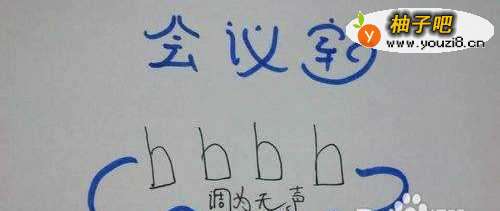 会议室
柚子吧
www.youzi8.cn
h h h h
调为无声
Bai